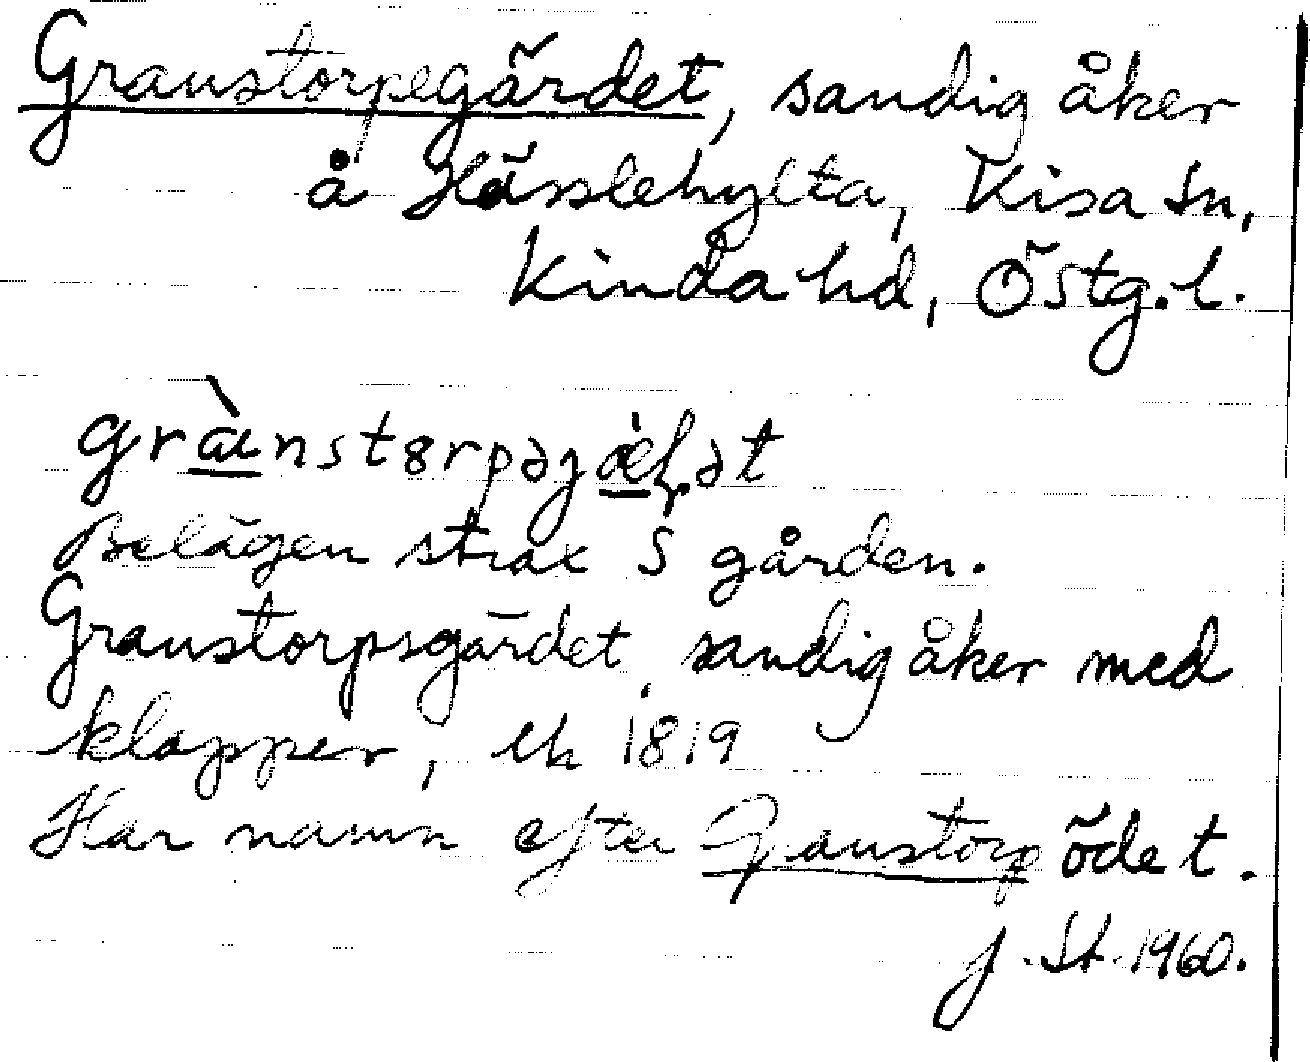 Granstorpegärdet, sandig åker
å Hässlehylta, Kisa sn,
Kinda hd, Östg.l.
grànstørpəgæ̀ɽət
Belägen strax S gården.
Granstorpsgärdet, sandig åker med
klapper, Lh 1819
Har namn efter Granstorp ödet.
J. St. 1960.